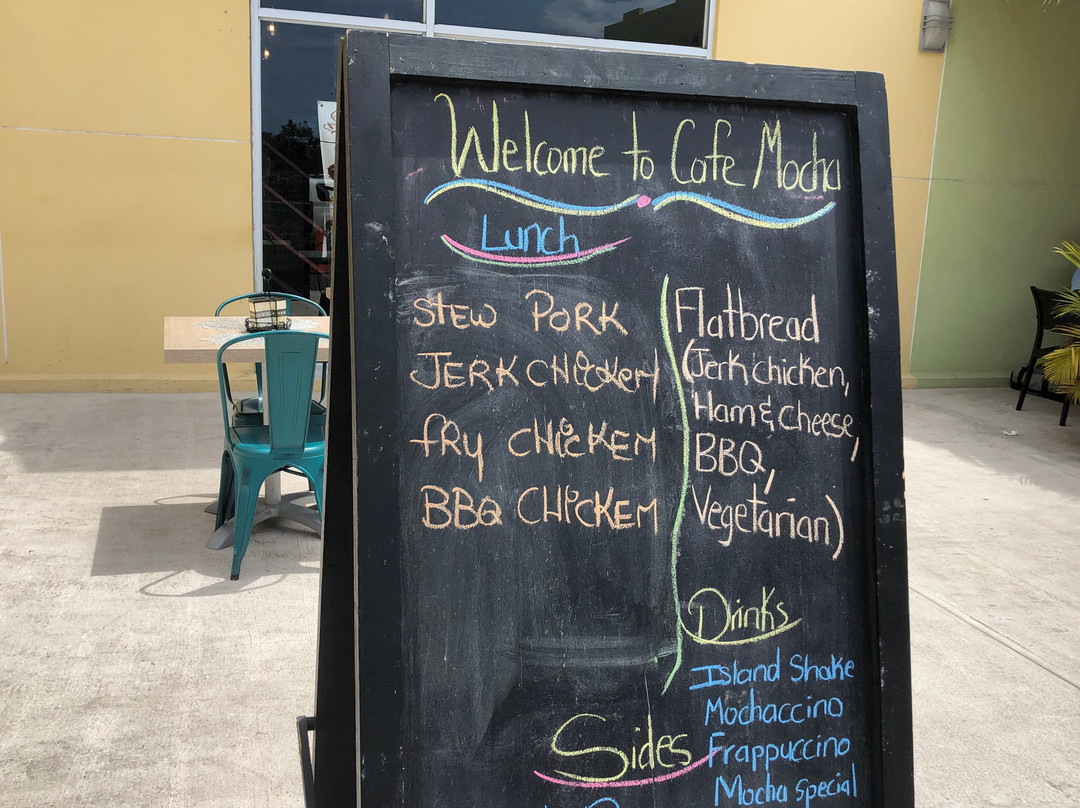 Welcome to Cafe Mocha
Lunch
STEW PORK
JERK CHICKEN
FRY CHICKEM
BBQ CHICKEM
Flatbread
(Jerk chicken,
Ham & cheese,
BBQ,
Vegetarian)
Drinks
Island Shake
Mochaccino
Frappuccino
Mocha special
Sides